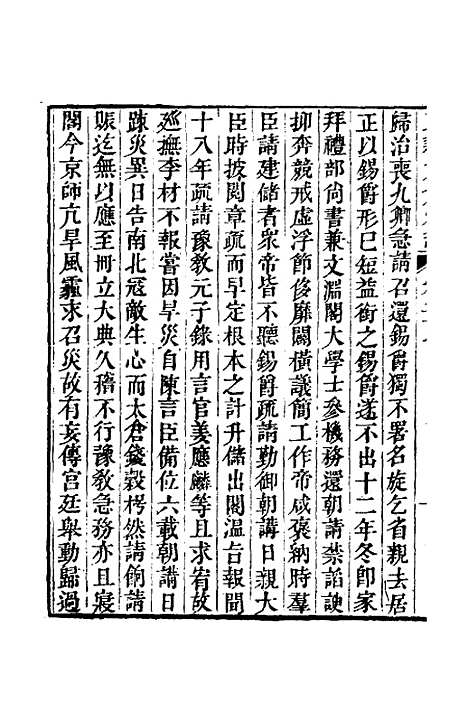 歸治喪九卿急請召還錫爵獨不署名旋乞省親去居
正以錫爵形已短益銜之錫爵遂不出十二年冬卽家
拜禮部尚書兼文淵閣大學士參機務還朝請禁諂諛
抑奔競戒虛浮節侈靡闢橫議簡工作帝咸褒納時羣
臣請建儲者衆帝皆不聽錫爵疏請勤御朝講日親大
臣時披閱章疏而早定根本之計升儲出閣溫旨報聞
十八年疏請豫敎元子錄用言官姜應麟等且求宥故
巡撫李材不報嘗因旱災自陳言臣備位六載朝講日
踈災異日告南北寇敵生心而太倉錢穀枵然請餉請
賑迄無以應至冊立大典久稽不行豫敎急務亦且寢
閣今京師亢旱風霾求召災故有妄傳宮廷舉動歸過